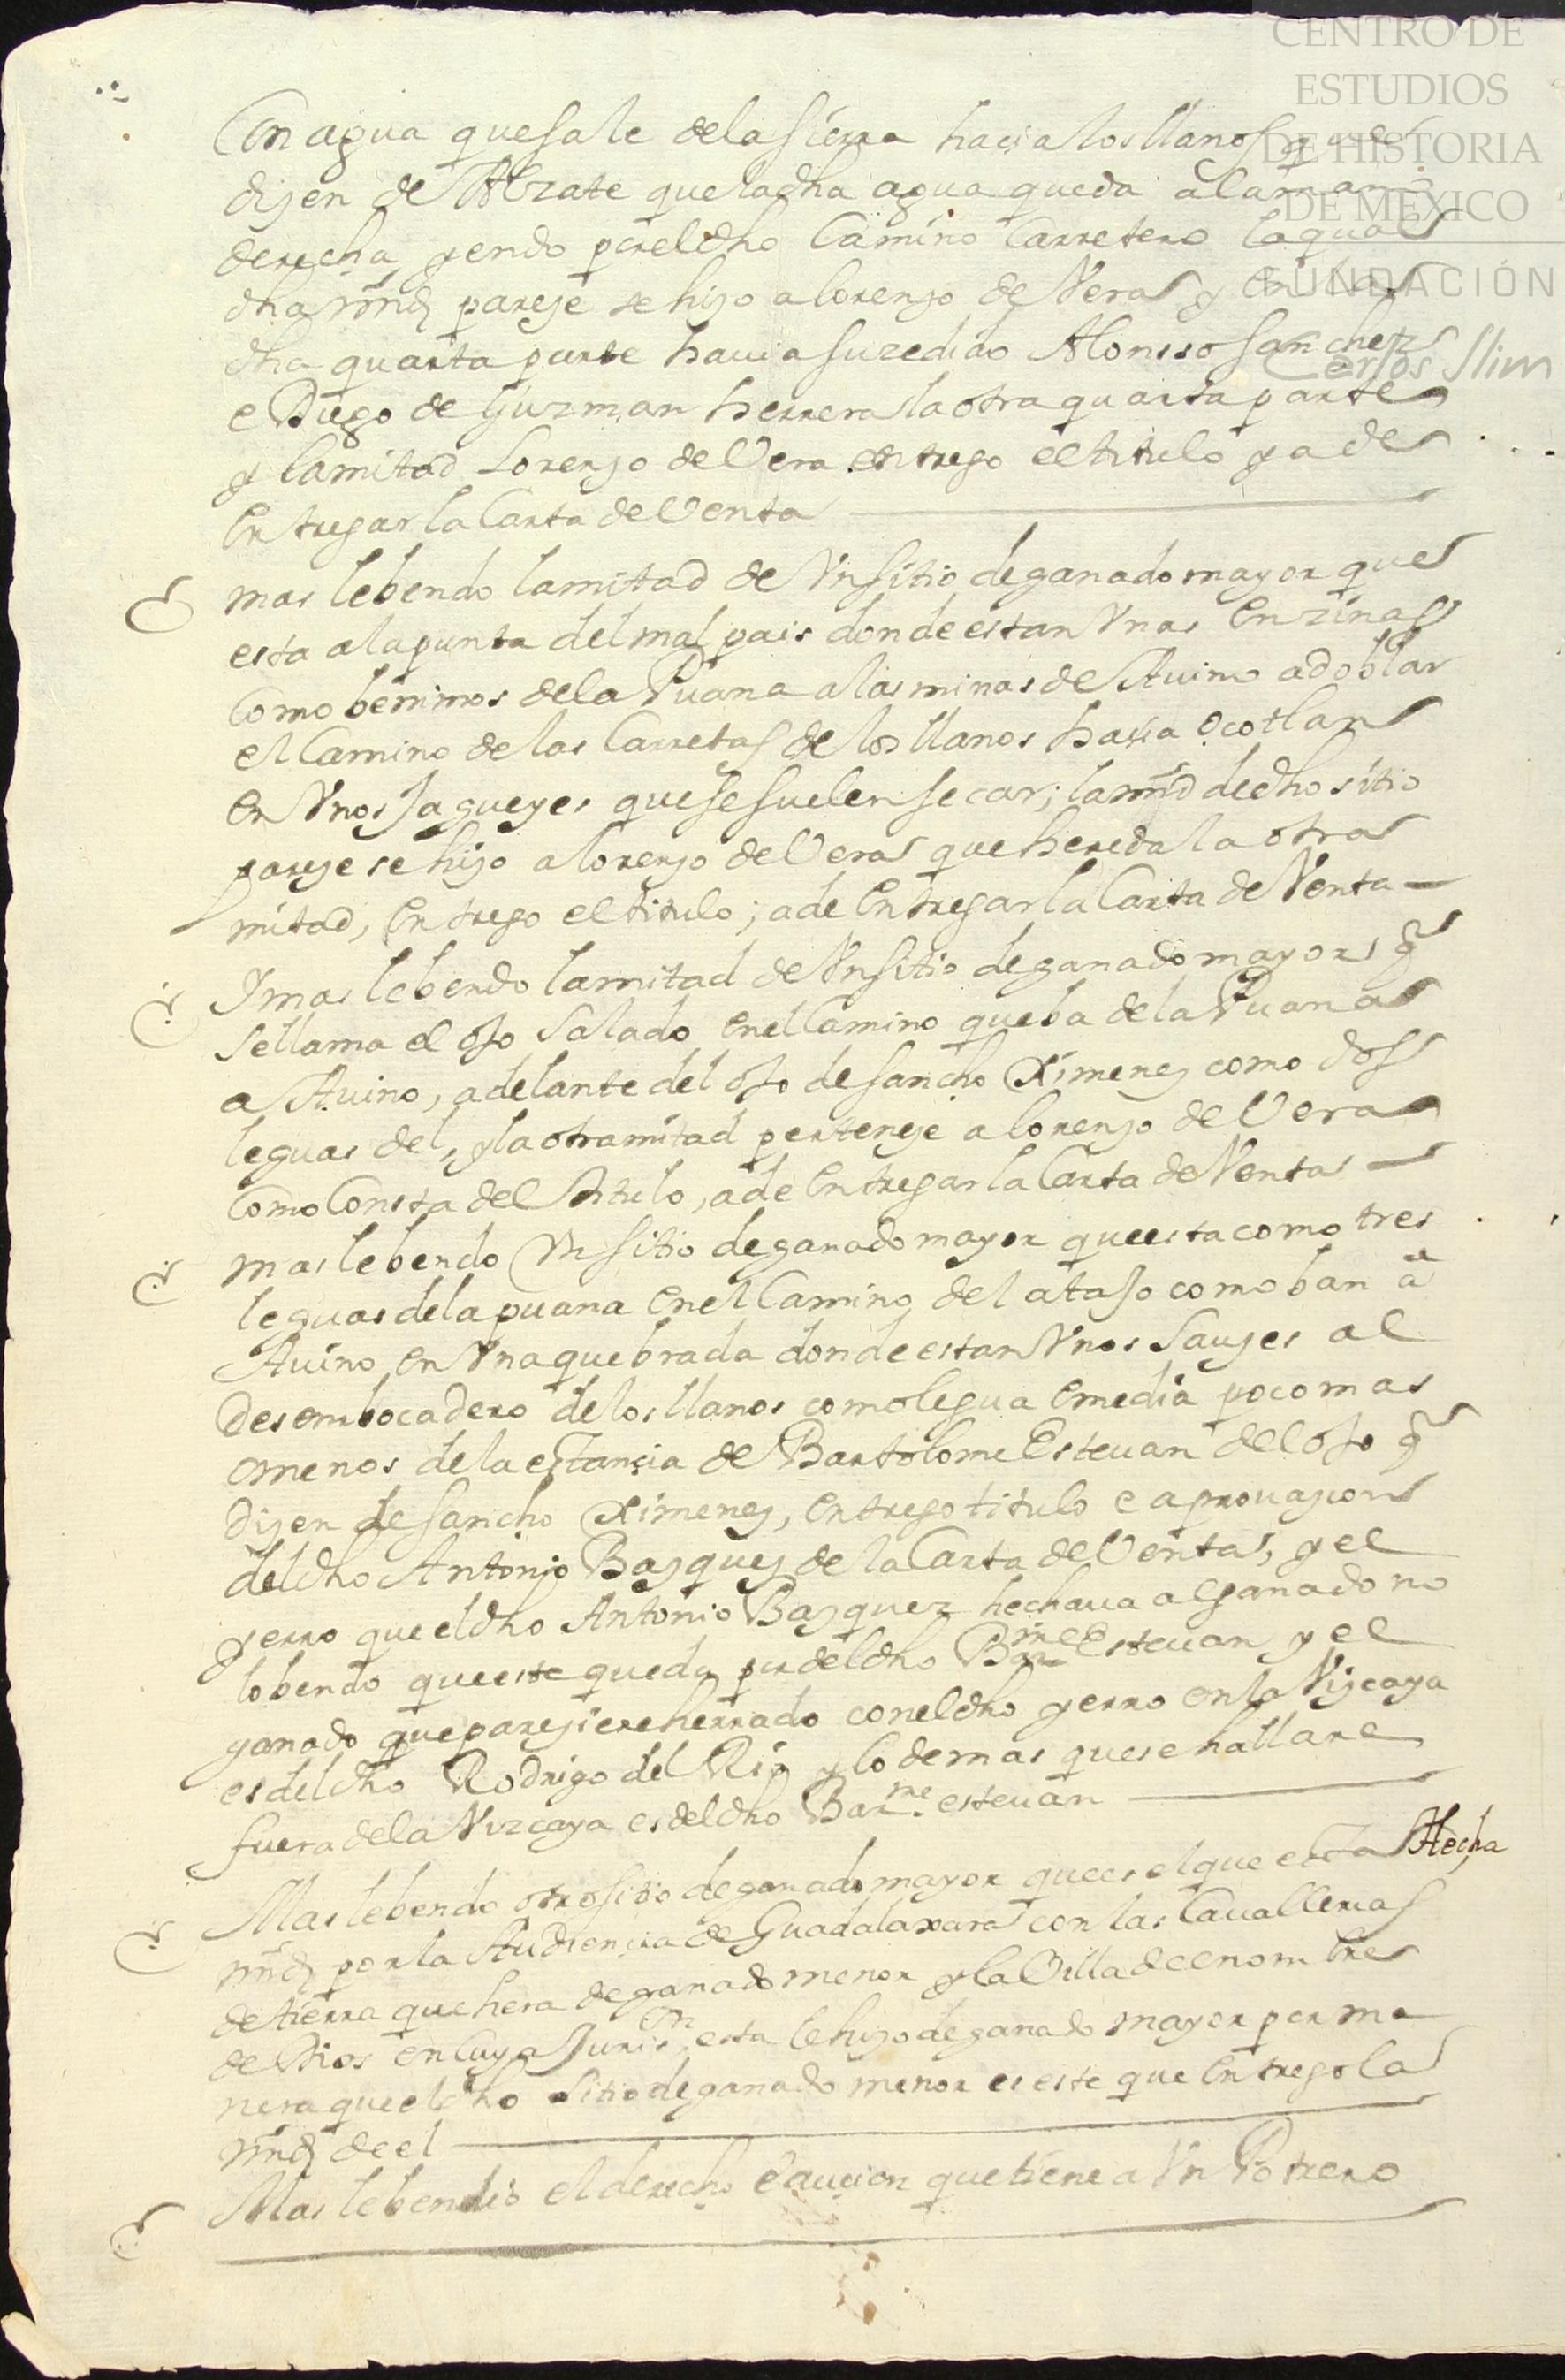 CENTRO DE
ESTUDIOS
DE HISTORIA
DE MÉXICO
FUNDACIÓN
Carlos Slim
Con agua que sale de la sierra haçia los llanos que
diçen de Alzate que la dha agua queda a la mano
derecha yendo por el dho Camino Carretero la qual
dha mrd pareçe se hiço a lorenço de Vera y en la
dha quarta parte hauia suzedido Alonsso sanchez
e Diego de Guzman herrera la otra quarta parte
y la mitad Lorenço de Vera entrego el titulo y a de
Entregar la Carta de Venta
mas le bendo la mitad de Vn sitio de ganado mayor que
esta a la punta del mal pais donde estan Vnas Enzinas
Como benimos de la Puana a las minas de Auino a doblar
el Camino de las Carretas de los llanos haçia Ocotlan
en Vnos Jagueyes que se suelen secar; la mrd de dho sitio
pareçe se hiço a lorenço de Vera que hereda la otra
mitad, Entrego el titulo; a de Entregar la Carta de Venta
Y mas le bendo la mitad de Vn sitio de ganado mayor q
se llama el ojo Salado en el Camino que ba de la Puana
a Auino, adelante del ojo de sancho Ximenez como dos
leguas del, y la otra mitad perteneçe a lorenço de Vera
Como Consta del titulo, a de Entregar la Carta de Venta
mas le bendo Vn sitio de ganado mayor que esta como tres
leguas de la puana en el Camino del atajo como ban a
Auino en Vna quebrada donde estan Vnos Sauçes al
desembocadero de los llanos como legua e media poco mas
o menos de la estançia de Bartolome Esteuan del ojo q
diçen de sancho Ximenez, entrego titulo e aprouaçion
del dho Antonio Bazquez de la Carta de Venta, y el
yerro que el dho Antonio Bazquez hechaua al ganado no
lo bendo que este queda por del dho Barme Esteuan y el
ganado que pareçiere herrado con el dho yerro en la Vizcaya
es del dho Rodrigo del Rio y lo demas que se hallare
fuera de la Vizcaya es del dho Barme esteuan
Mas le bendo otro sitio de ganado mayor que es el que esta Hecha
mrd por la Audiençia de Guadalaxara con las Cauallerias
de tierra que hera de ganado menor y la Villa de enombre
de Dios en Cuya Jurison esta le hiço de ganado mayor por ma
nera que el dho sitio de ganado menor es este que Entrego la
mrd de el
Mas le bendio el derecho e auçion que tiene a Vn Potrero